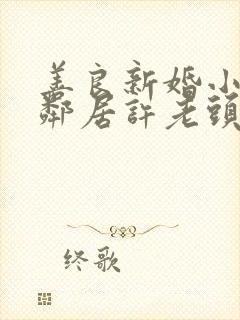 善良新婚小
鄰居許老頭
终歌